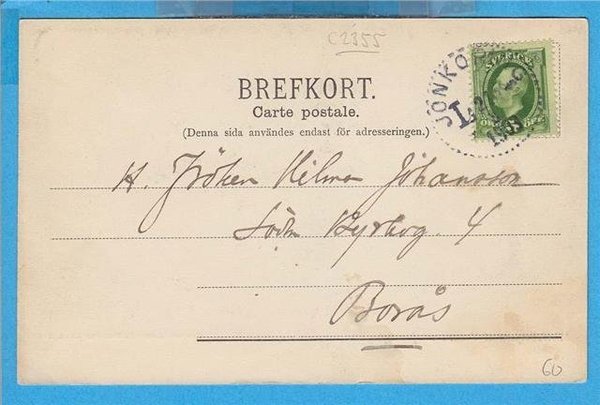 C2355
BREFKORT.
Carte postale.
(Denna sida användes endast för adresseringen.)
SVERIGE
JÖNKÖ
1903
H. Fröken Hilma Johansson
Södra Kyrkog. 4
Borås
60